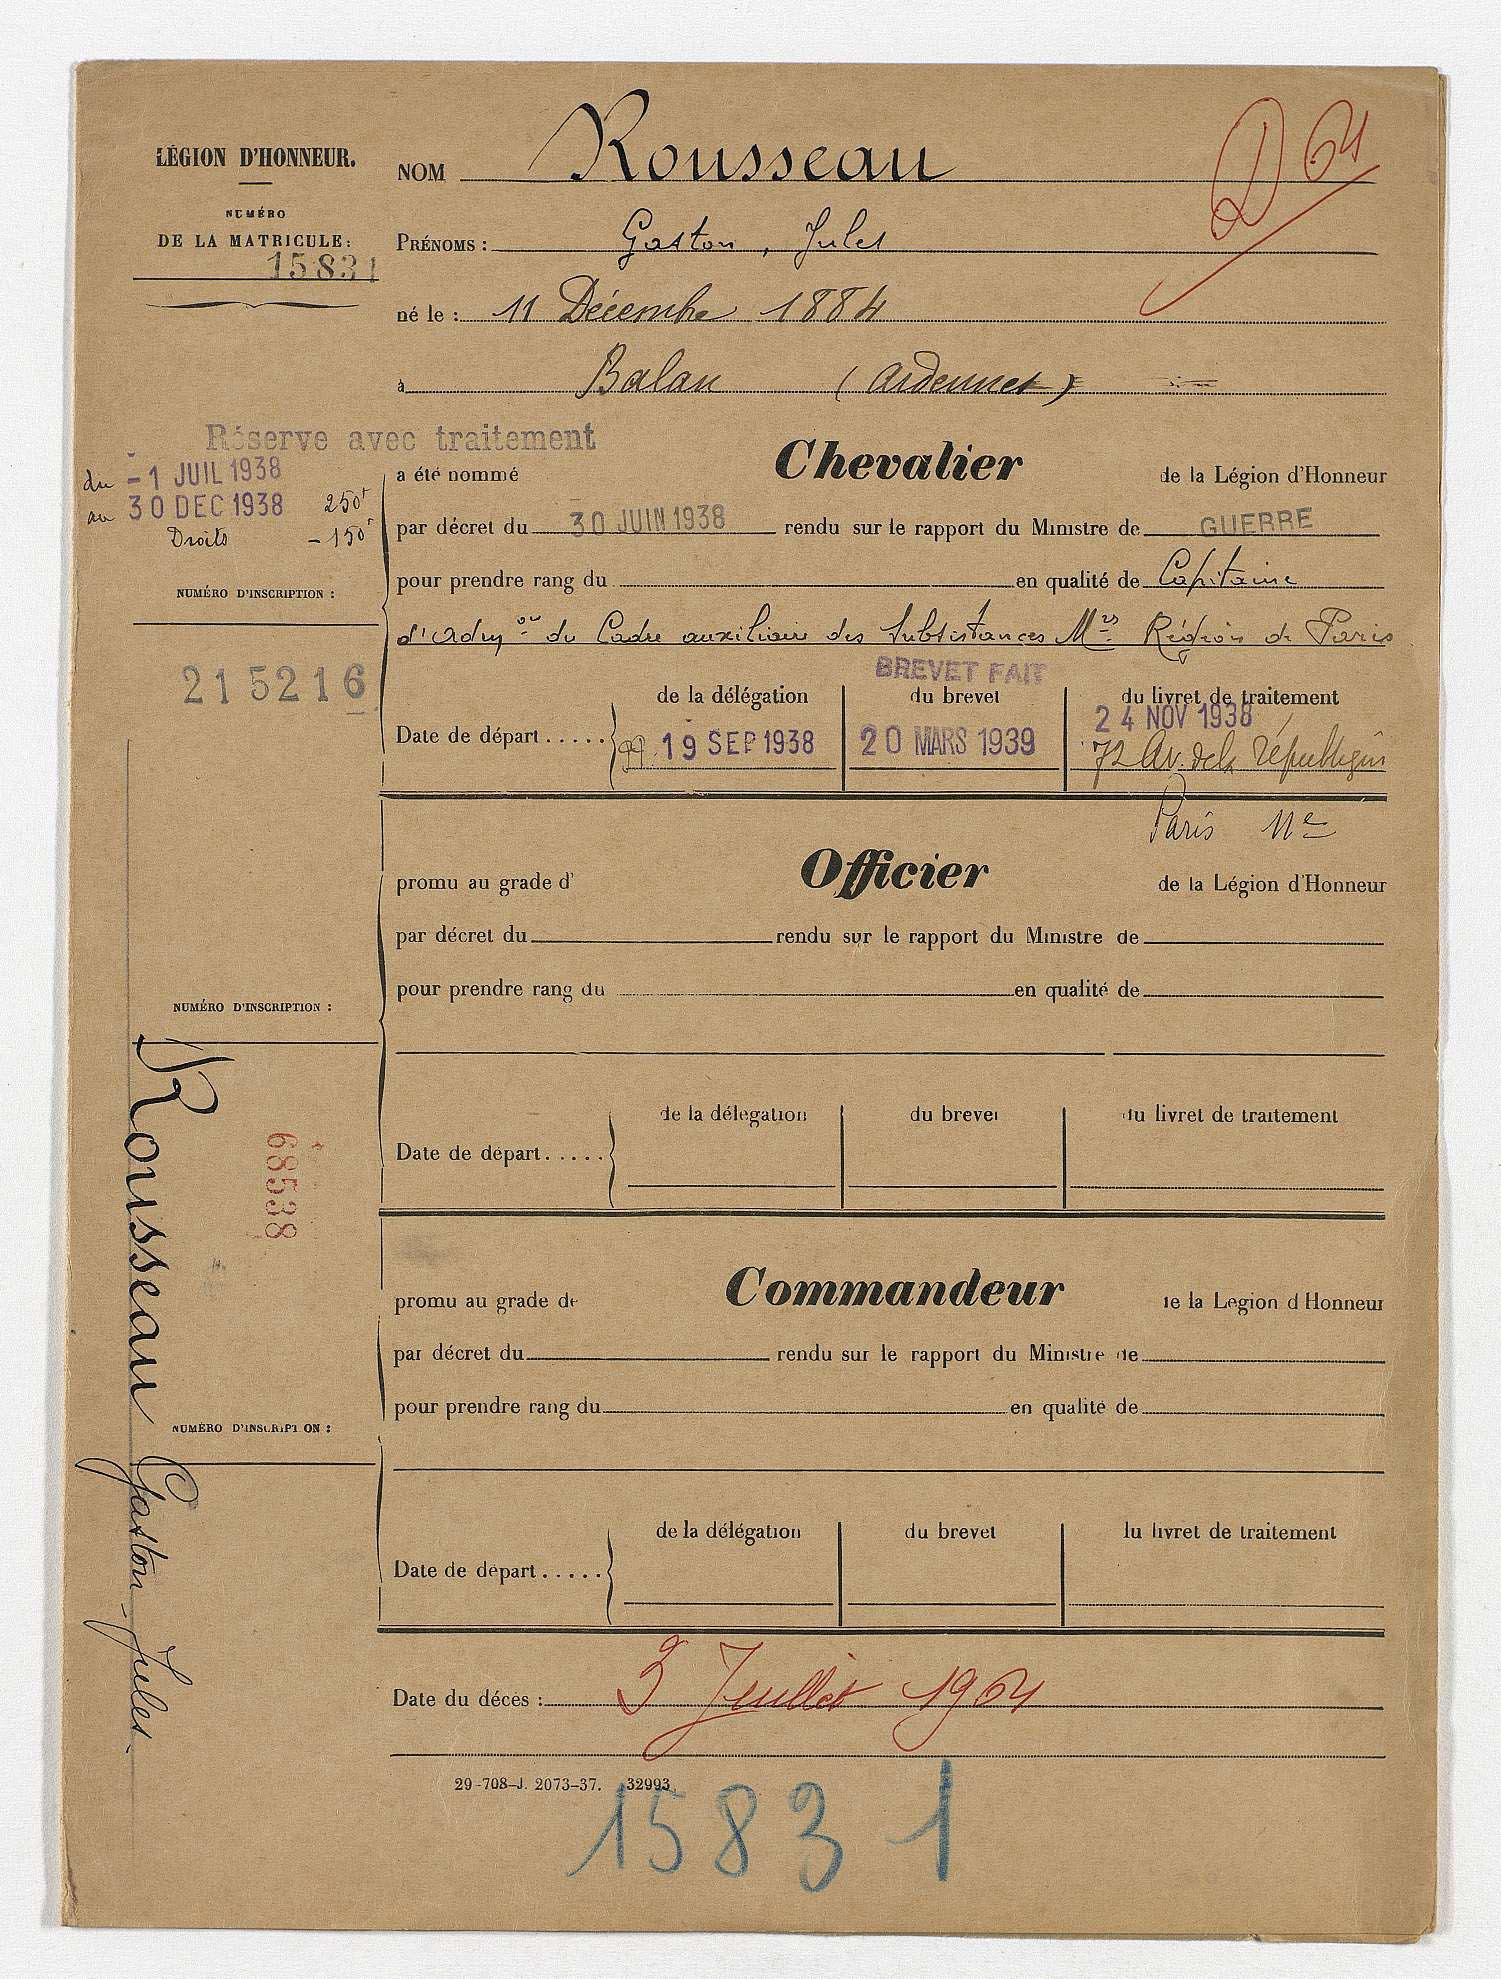 LÉGION D'HONNEUR.
NUMÉRO
DE LA MATRICULE:
15831
NOM Rousseau
D 64
PRÉNOMS : Gaston, Jules
né le : 11 Décembre 1884
à Balan (Ardennes)
Réserve avec traitement
du -1 JUIL 1938
au 30 DEC 1938 250f
Droits -150f
a été nommé Chevalier de la Légion d'Honneur
par décret du 30 JUIN 1938 rendu sur le rapport du Ministre de GUERRE
pour prendre rang du en qualité de Capitaine
d'Adm on du Cadre auxiliaire des Subsistances Mres Région de Paris
NUMÉRO D'INSCRIPTION :
215216
BREVET FAIT
de la délégation du brevet du livret de traitement
Date de départ..... 19 SEP 1938 20 MARS 1939 24 NOV 1938
72 Av. de la République
Paris 11e
promu au grade d' Officier de la Légion d'Honneur
par décret du rendu sur le rapport du Ministre de
pour prendre rang du en qualité de
NUMÉRO D'INSCRIPTION :
68538
de la délégation du brevet du livret de traitement
Date de départ.....
promu au grade de Commandeur de la Légion d'Honneur
par décret du rendu sur le rapport du Ministre de
pour prendre rang du en qualité de
NUMÉRO D'INSCRIPTION :
de la délégation du brevet du livret de traitement
Date de départ.....
Rousseau Gaston-Jules.
Date du décès : 3 Juillet 1964
29-708-J. 2073-37. 32993
15831